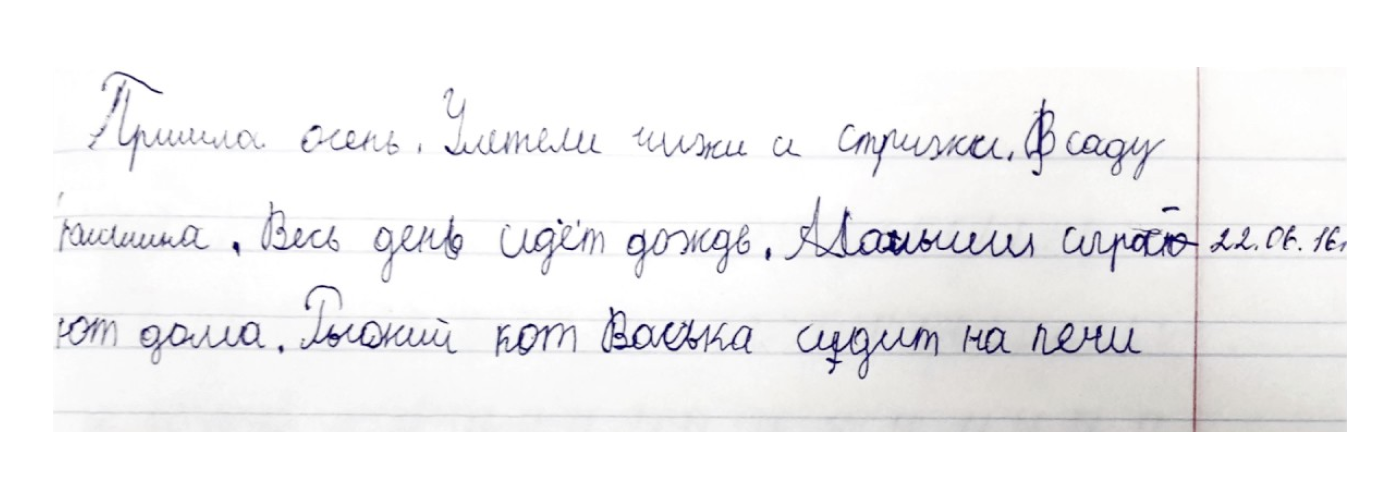 Пришла осень. Улетели чижи и стрижи. В саду
тишина. Весь день идёт дождь. Малыши играю 22.06.16
ют дома. Рыжий кот Васька сидит на печи